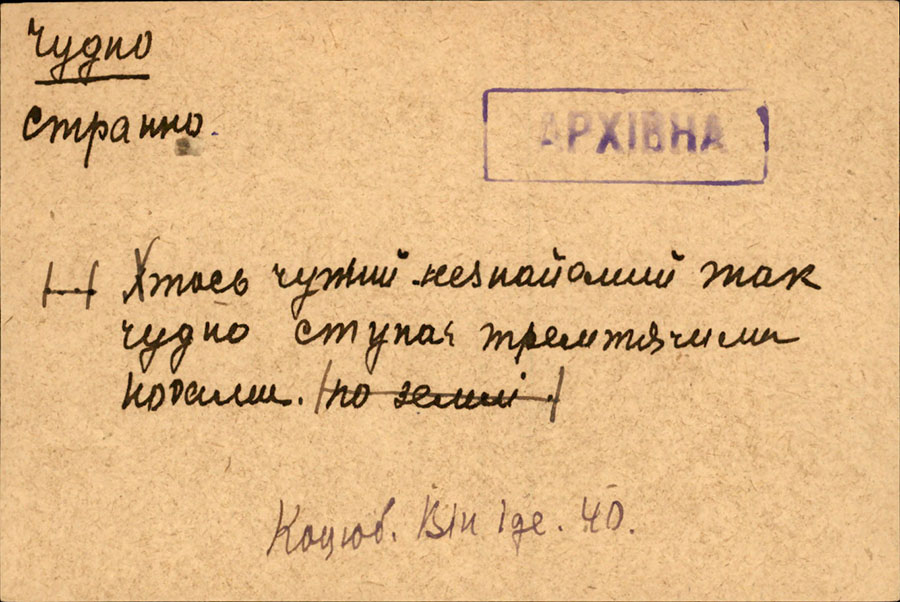 Чудно
странно.
АРХІВНА
|...| Хтось чужий незнайомий так
чудно ступає тремтячими
ногами. |по землі.|
Коцюб. Він іде. 40.